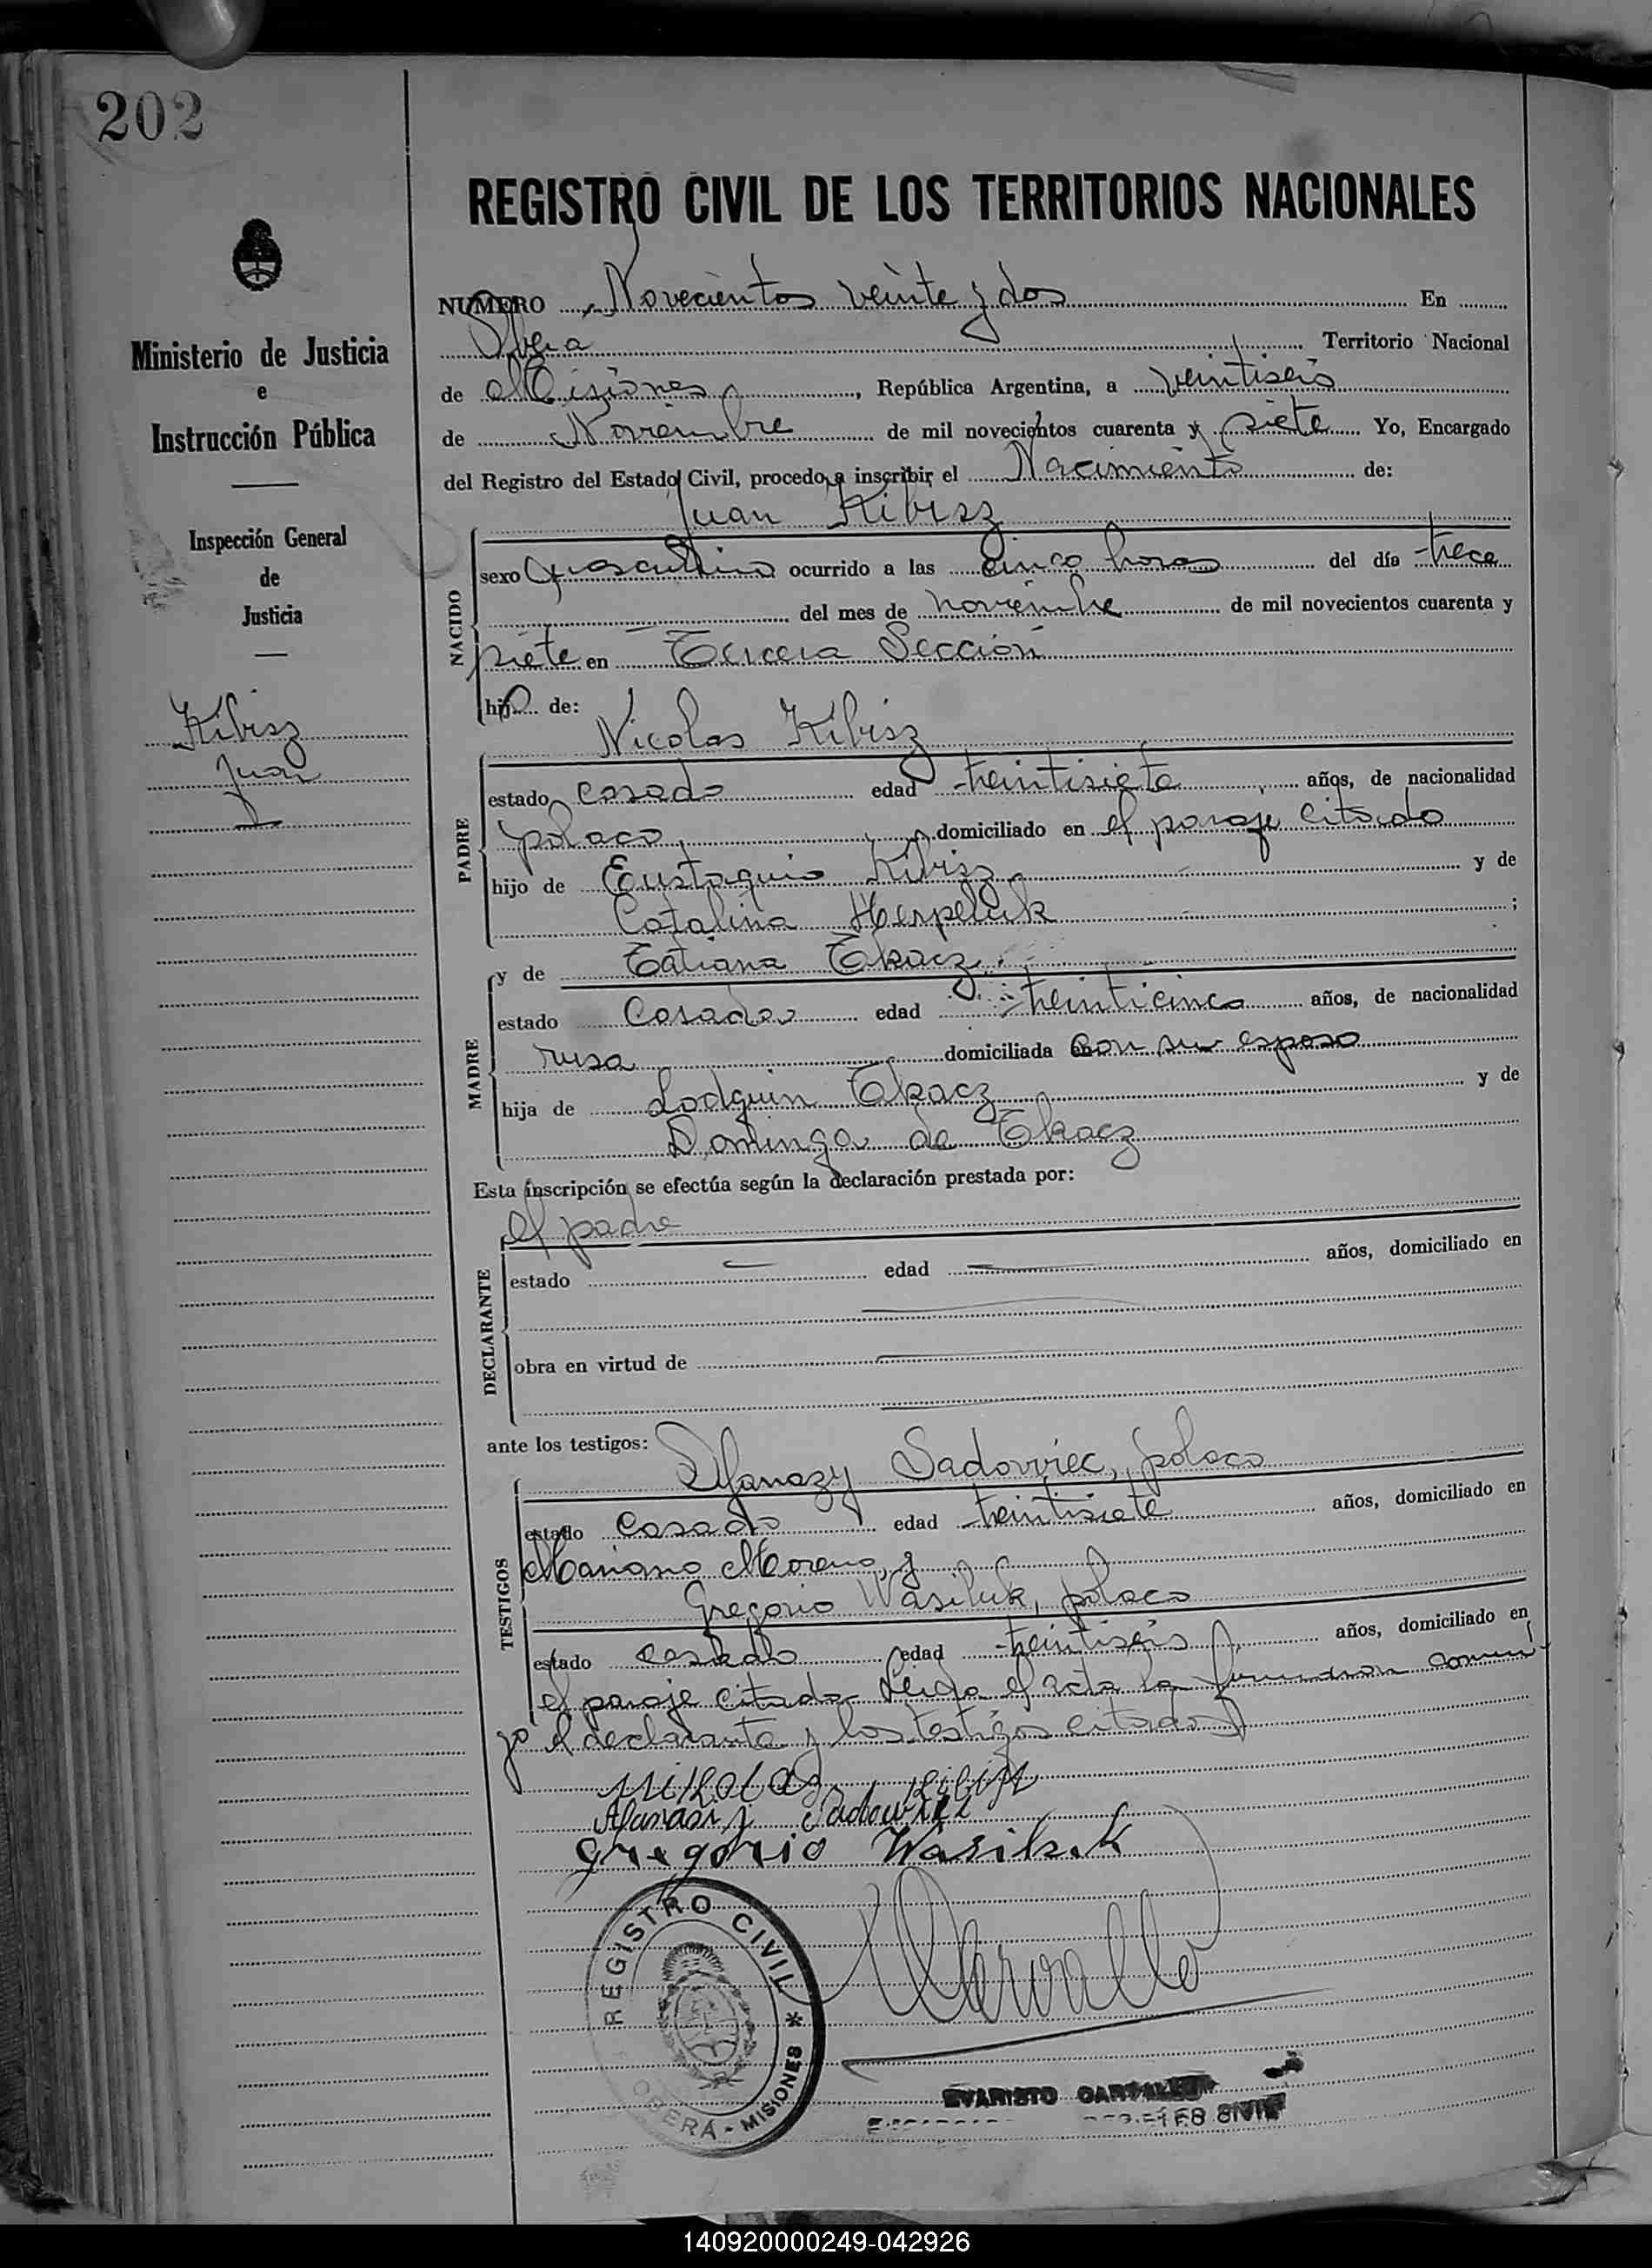 202
REGISTRO CIVIL DE LOS TERRITORIOS NACIONALES
Ministerio de Justicia
e
Instrucción Pública
Inspección General
de
Justicia
Kibisz
Juan
NUMERO Novecientos veinte y dos En
Obera Territorio Nacional
de Misiones, República Argentina, a veintiseis
de Noviembre de mil novecientos cuarenta y siete Yo, Encargado
del Registro del Estado Civil, procedo a inscribir el Nacimiento de:
Juan Kibisz
NACIDO
sexo masculino ocurrido a las cinco horas del día trece
del mes de noviembre de mil novecientos cuarenta y
siete en Tercera Sección
hijo de:
Nicolas Kibisz
PADRE
estado casado edad treintisiete años, de nacionalidad
polaco domiciliado en el paraje citado
hijo de Eustaquio Kibisz y de
Catalina Herpeluk ;
y de Tatiana Tkacz
MADRE
estado Casada edad treinticinco años, de nacionalidad
rusa domiciliada con su esposo
hija de Tkacz y de
Dominga de Tkacz
Esta inscripción se efectúa según la declaración prestada por:
el padre
DECLARANTE
estado edad años, domiciliado en
obra en virtud de
ante los testigos:
Afanazy Sadowiec, polaco
TESTIGOS
estado Casado edad treintisiete años, domiciliado en
Mariano Moreno, y
Gregorio Wasiluk, polaco
estado casado edad treintiseis años, domiciliado en
el paraje citado Leida el acta la firmaron conmi
go el declarante y los testigos citados
Gregorio Wasiluk
REGISTRO CIVIL * OBERÁ - MISIONES
EVARISTO
140920000249-042926